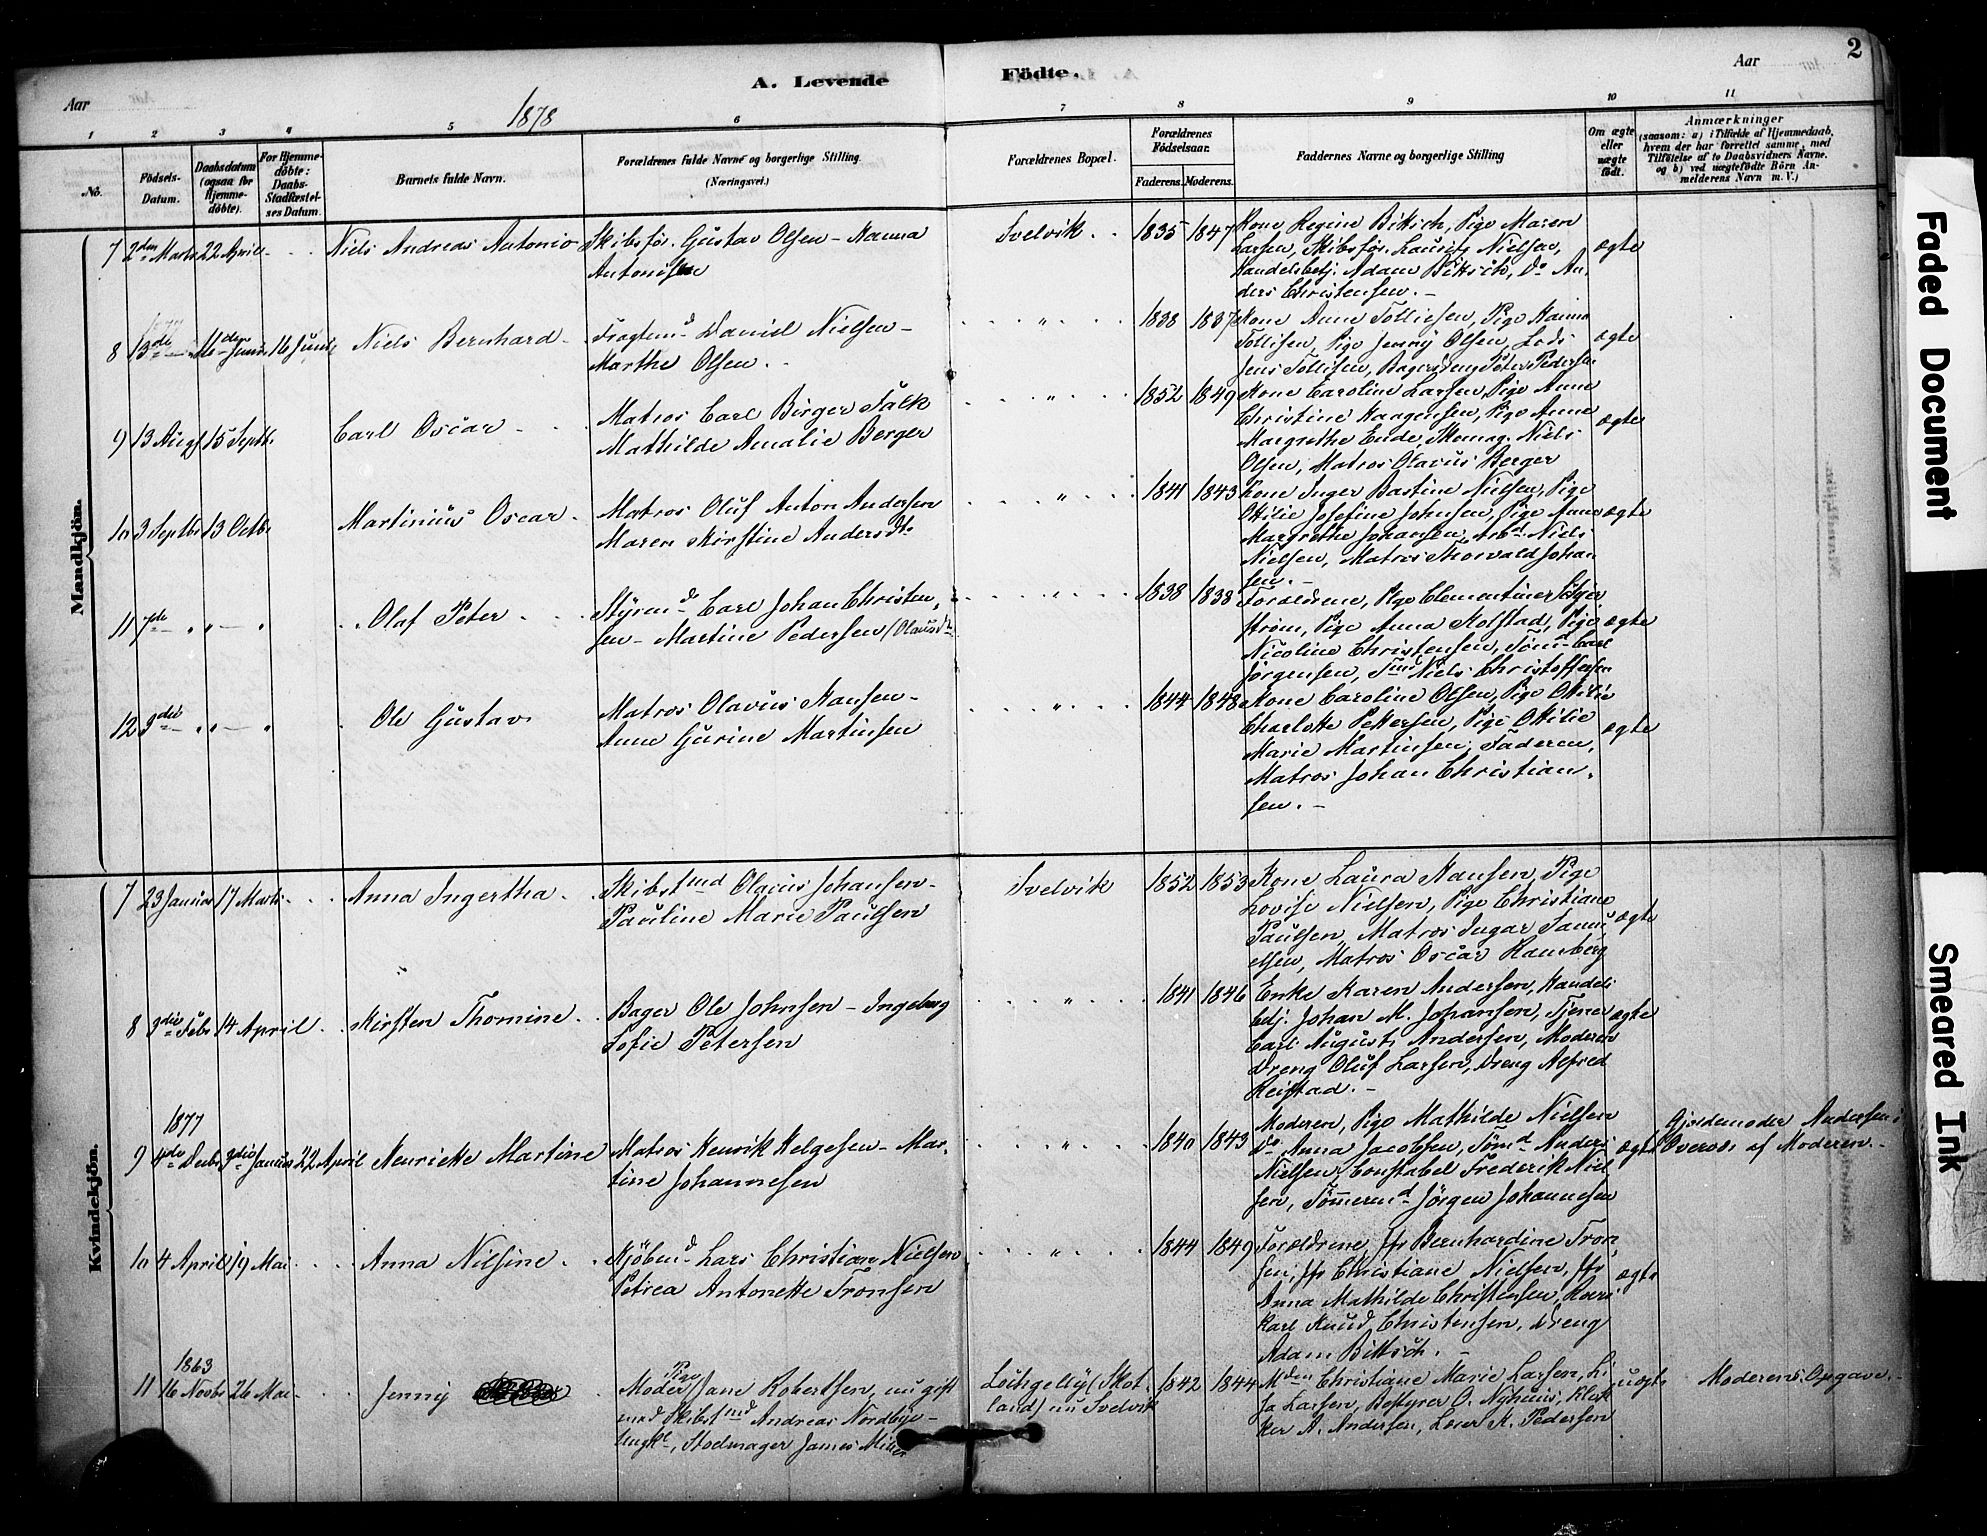 2
Aar
A. Levende
Födte.
Aar
1878
1 2 3 4 5 6 7 8 9 10 11
No.
Födsels-
Datum.
Daabsdatum
(ogsaa for
Hjemme-
döbte).
For Hjemme-
döbte:
Daabs-
Stadfæstel-
ses Datum.
Barnets fulde Navn.
Forældrenes fulde Navne og borgerlige Stilling.
(Næringsvei.)
Forældrenes Bopæl.
Forældrenes
Födselsaar.
Faderens. Moderens.
Faddernes Navne og borgerlige Stilling
Om ægte
eller
uægte
födt.
Anmærkninger
(saasom: a) i Tilfælde af Hjemmedaab,
hvem der har forrettet samme, med
Tilföielse af to Daabsvidners Navne.
og b) ved uægtefödte Börn An-
melderens Navn m. V.)
Mandkjön.
7 2den Marts 22 April Niels Andreas Antonio Skibsför. Gustav Olsen - Hanna
Antonisen
Svelvik 1835 1847
Kone Regine Biksch, Pige Maren
Larsen, Skibsför. Lauritz Nielsen,
Handelsbetj. Adam Biksch, Do An-
ders Christensen. -
ægte
8 13de 16 Juni Niels Bernhard Fragtemd Daniel Nielsen -
Marthe Olsen
" 1838 1837
Kone Anne Tollifsen, Pige Hanna
Tollifsen, Pige Jenny Olsen, Lods
Jens Tollifsen, Bagerdreng Peter Pedersen
ægte
9 13 Augs 15 Septb. Carl Oscar Matros Carl Birger Falk
Mathilde Amalie Berger
" 1852 1849
Kone Caroline Larsen, Pige Anne
Christine Haagensen, Pige Anne
Margrethe Eude, Skomag. Niels
Olsen, Matros Olavus Berger
ægte
10 3 Septbr 13 Octbr Martinius Oscar Matros Oluf Anton Andersen
Maren Kirstine Andersdtr
" 1841 1843
Kone Inger Bastine Nielsen, Pige
Otilie Josefine Johnsen, Pige Anne
Margrethe Johansen, Arbd. Niels
Nielsen, Matros Thorvald Johan
sen. -
ægte
11 7de " " Olaf Peter Styrmd Carl Johan Christen-
sen - Martine Pedersen (Olausd.
" 1838 1838
Forældrene, Pige Clementine
strøm, Pige Anna Kolstad, Pige
Nicoline Christensen, Tømd Carl
Jørgensen, Tmd Niels Christoffersen
ægte
12 9de " " Ole Gustav Matros Olavus Hansen -
Anne Gurine Martinsen
" 1844 1848
Kone Caroline Olsen, Pige Otilie
Charlotte Pettersen, Pige Ottilie
Marie Martinsen, Faderen,
Matros Johan Christian-
sen. -
ægte
Kvindekjön.
7 23 Januar 17 Marts Anna Ingertha Skibstmd Olavus Johansen -
Pauline Marie Paulsen
Svelvik 1852 1853
Kone Laura Hansen, Pige
Lovise Nielsen, Pige Christiane
Paulsen, Matros Ingar Samu-
elsen, Matros Oscar Ramberg
ægte
8 3die Febr 14 April Kirsten Thomine Bager Ole Johnsen - Ingeborg
Sofie Petersen
" 1841 1846
Enke Karen Andersen, Handels
betj. Johan M. Johansen, Tjener
Carl August Andersen, Moderen
Dreng Oluf Larsen, Dreng Alfred
Reistad. -
ægte
1877
9 4de Decbr 9die Januar 22 April Henriette Martine Matros Henrik Helgesen - Mar-
tine Johannesen
" 1840 1843
Moderen, Pige Mathilde Nielsen
Do Anna Jacobsen, Tømd Anders
Nielsen, Constabel Frederik Niel
sen, Tømmermd Jörgen Johannesen
ægte
Gjordemoder Andersen i
Overvær af Moderen. -
10 4 April 19 Mai Anna Nilsine Kjöbmd Lars Christian Nielsen
Petrea Antonette Tronsen
" 1844 1849
Forældrene, Bernhardine Tron-
sen, Christiane Nielsen,
Anna Mathilde Christensen,
Karl Knud Christensen, Dreng
Adam Biktsch. -
ægte
1863
11 16 Novbr 26 Mai Jenny Moder Pige Jane Robertsen, nu gift
med Skibstmd Andreas Nordbye -
Ungkl, Skomager James Miller
Lochgelly (Skot-
land) nu Svelvik
1842 1844
Mden Christiane Marie Larsen, Li-
Larsen, Bestyrer O. Nyhuus, Klok
ker A. Andersen, Lærer H. Pedersen
uægte
Moderens Opgave. -
Faded Document
Smeared Ink